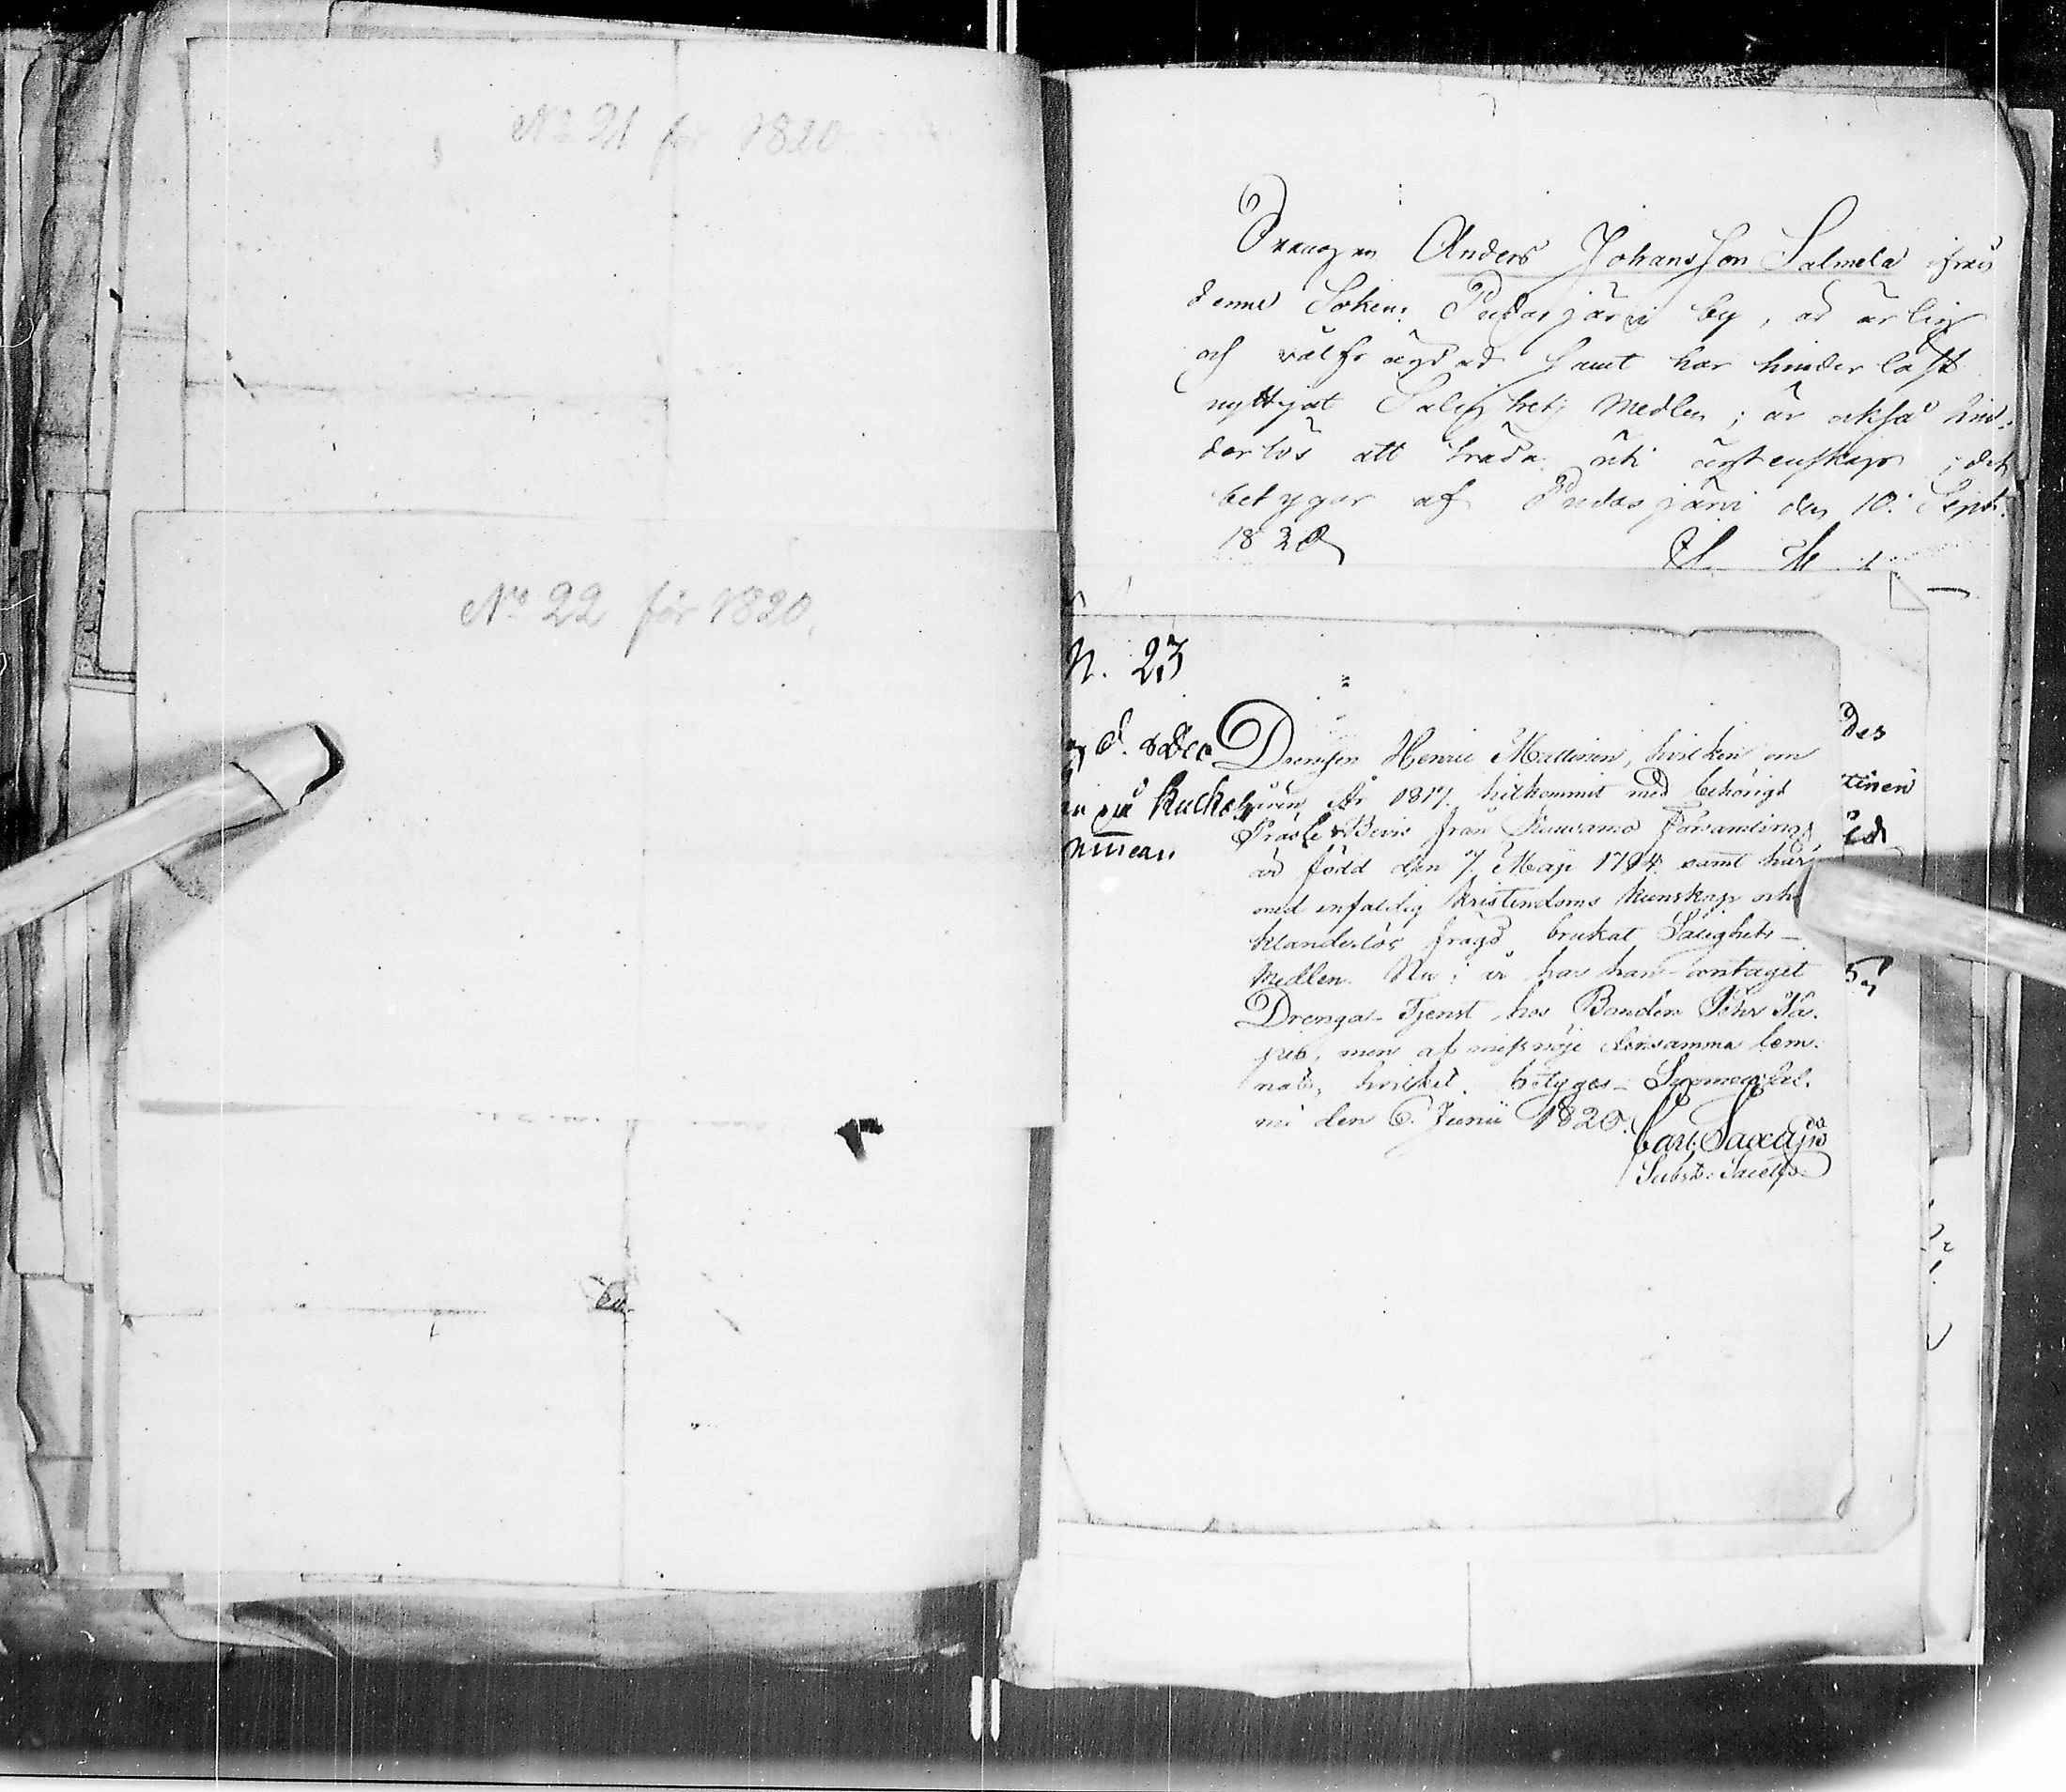 No 21 för 1820.
No 22 för 1820.
Drengen Anders Johansson Salmela ifrån
denne Sokens Pudasjärvi by, är ärlig
och välfrägdad samt har hinderlöst
nyttjat Salighets Medlen; är också hin-
derlös att träda uti ägtenskap; det
betygar af Pudasjärvi den 10. Sept.
1820
N. 23
Drengen Henric Mattinen, hvilken om
våren År 1817 hitkommit med behörigt
Präste Bevis från Kuusamo Församling,
är född den 7. Maji 1794. samt har
med enfaldig kristendoms kunskap och
klanderlös frägd brukat Salighets-
Medlen. Nu i år har han antaget
Drenga-Tjenst hos Bonden Pehr
men af missnöje densamma lem-
nat, hvilket betygas
den 6. Junii 1820.
Carl
Subst: Sacell
des
tinen